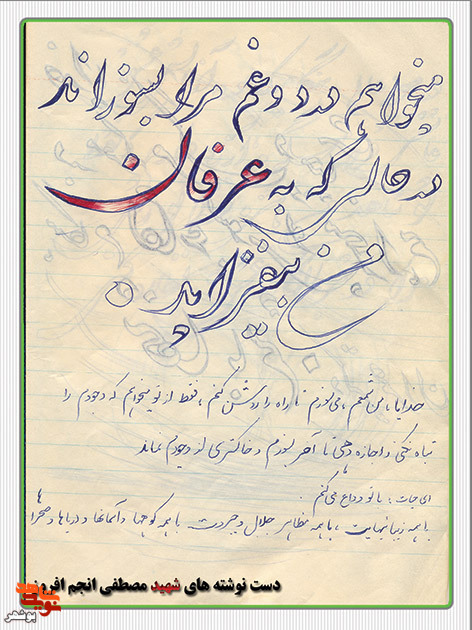 میخواهم درد و غم مرا بسوزاند
در حالی که به عرفان
من بیفزاید.
خدایا، من شمعم، می‌سوزم تا راه را روشن کنم، فقط از تو میخواهم که وجودم را
تباه نکنی و اجازه دهی تا آخر بسوزم و خاکستری از وجودم نماند
ای حیات، با تو وداع می کنم
با همه زیبائیهایت، با همه مظاهر جلال و جبروت با همه کوهها و آسمانها و دریاها و صحراها
دست نوشته های شهید مصطفی انجم افروز
نوید شاهد
بوشهر